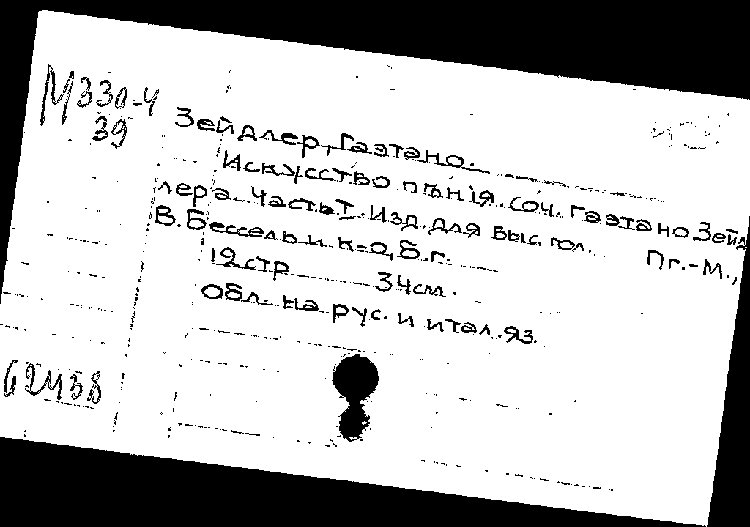 М330-4
39
Зейдлер, Гаэтано.
Искусство пѣнія. Соч. Гаэтано Зейд
лера. Часть I. Изд. для выс. гол. Пг.-М.,
В. Бессель и к=о, б.г.
12стр 34см.
Обл. на рус. и итал. яз.
62458